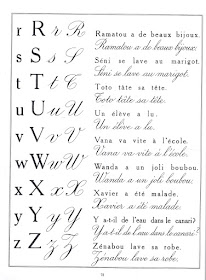 r R r R Ramatou a de beaux bijoux.
Ramatou a de beaux bijoux.
s S s S Séni se lave au marigot.
Séni se lave au marigot.
t T t T Toto tâte sa tête.
Toto tâte sa tête.
u U u U Un élève a lu.
Un élève a lu.
v V v V Vana va vite à l'école.
Vana va vite à l'école.
w W w W Wanda a un joli boubou.
Wanda a un joli boubou.
x X x X Xavier a été malade.
Xavier a été malade.
y Y y Y Y a-t-il de l'eau dans le canari?
Y a-t-il de l'eau dans le canari?
z Z z Z Zénabou lave sa robe.
Zénabou lave sa robe.